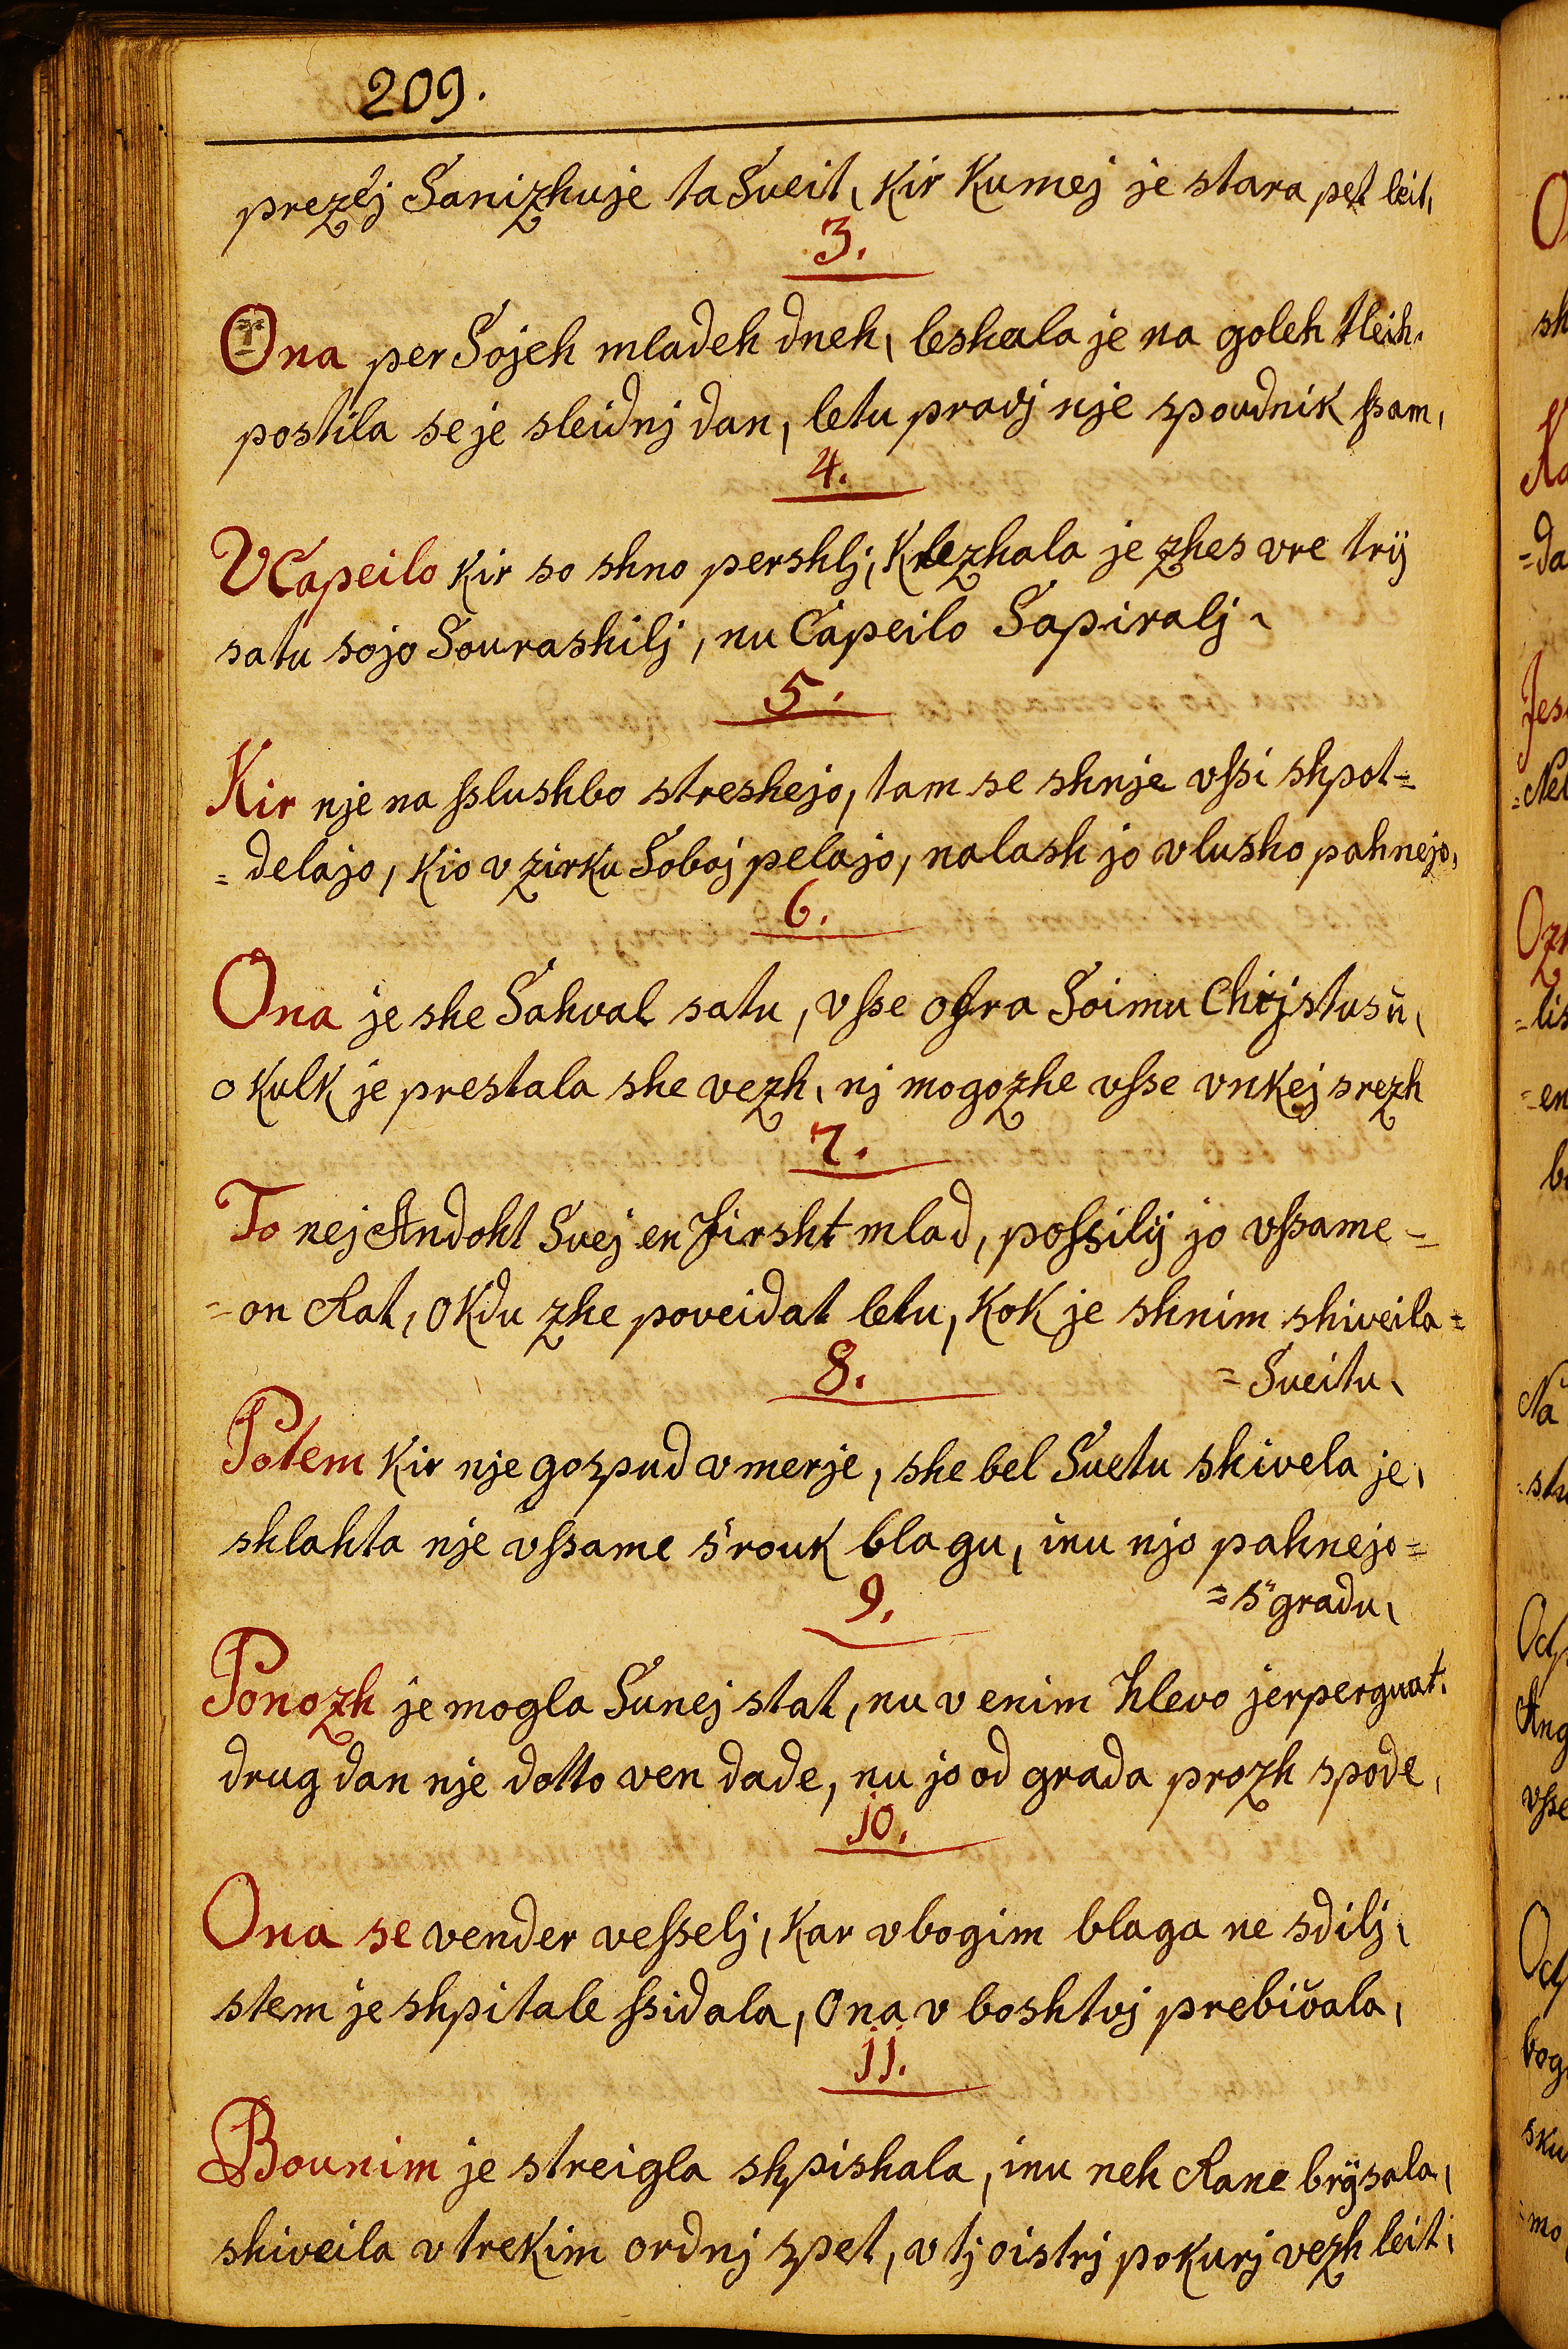 209.
prezéj Sanizhuje ta Sueit, kir kumej je stara pet leit,
3.
Ona per Sojeh mladeh dneh, leshala je na goleh tleih,
postila se je sleidnj dan, letu pravj nje spoudnik ſsam,
4.
V Capeilo kir so shno pershlj, klezhala je zhes vre trÿ
satu sojo Sourashilj, nu Capeilo Sapiralj,
5.
Kir nje na ſslushbo streshejo, tam se shnje vſsi shpot=
=delajo, kio v zirku Soboj pelajo, nalash jo v lusho pahnejo,
6.
Ona je she Sahval satu, vſse ofra Soimu Chrjstusŭ,
o kulk je prestala she vezh, nj mogozhe vſse vnkej srezh
7.
To nej Andoht Suej en Firsht mlad, poſsilÿ jo vſsame=
=on Rat, o kdu zhe poveidat letu, kok je shnim shiveila=
=Sueitu,
8.
Potem kir nje gospud vmerje, she bel Suetu shivela je,
shlahta nje vſsame s'rouk blagu, inu njo pahnejo=
=s"gradu,
9.
Ponozh je mogla Sunej stat, nu v enim hlevo jerpergvat,
drug dan nje dotto ven dade, nu jo od grada prozh spode,
jo.
Ona se vender veſselj, kar vbogim blaga ne sdilj,
stem je shpitale ſsidala, Ona v boshtvj prebiŭala,
jj.
Bounim je streigla shpishala, inu neh Rane brÿsala,
shiveila v trekim ordnj spet, v tj oistrj pokurj vezh leit,